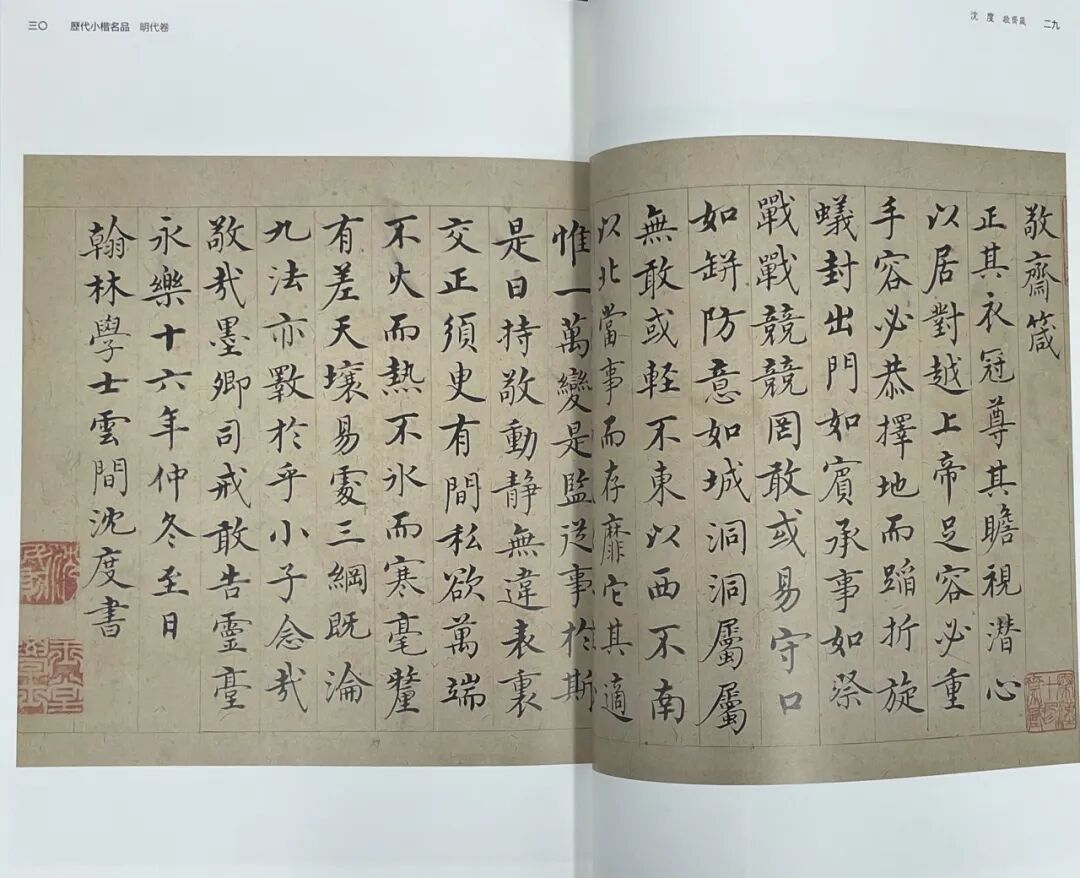 沈度 敬齋箴 二九
敬齋箴
正其衣冠尊其瞻視潜心
以居對越上帝足容必重
手容必恭擇地而蹈折旋
蟻封出門如賓承事如祭
戰戰兢兢罔敢或易守口
如缾防意如城洞洞屬屬
無敢或軽不東以西不南
以北當事而存靡它其適
惟一萬變是監従事於斯
是曰持敬動静無違表裏
交正須臾有間私欲萬端
不火而熱不氷而寒毫釐
有差天壤易處三綱既淪
九法亦斁於乎小子念哉
敬哉墨卿司戒敢告靈臺
永樂十六年仲冬至日
翰林學士雲間沈度書
三〇 歷代小楷名品 明代卷